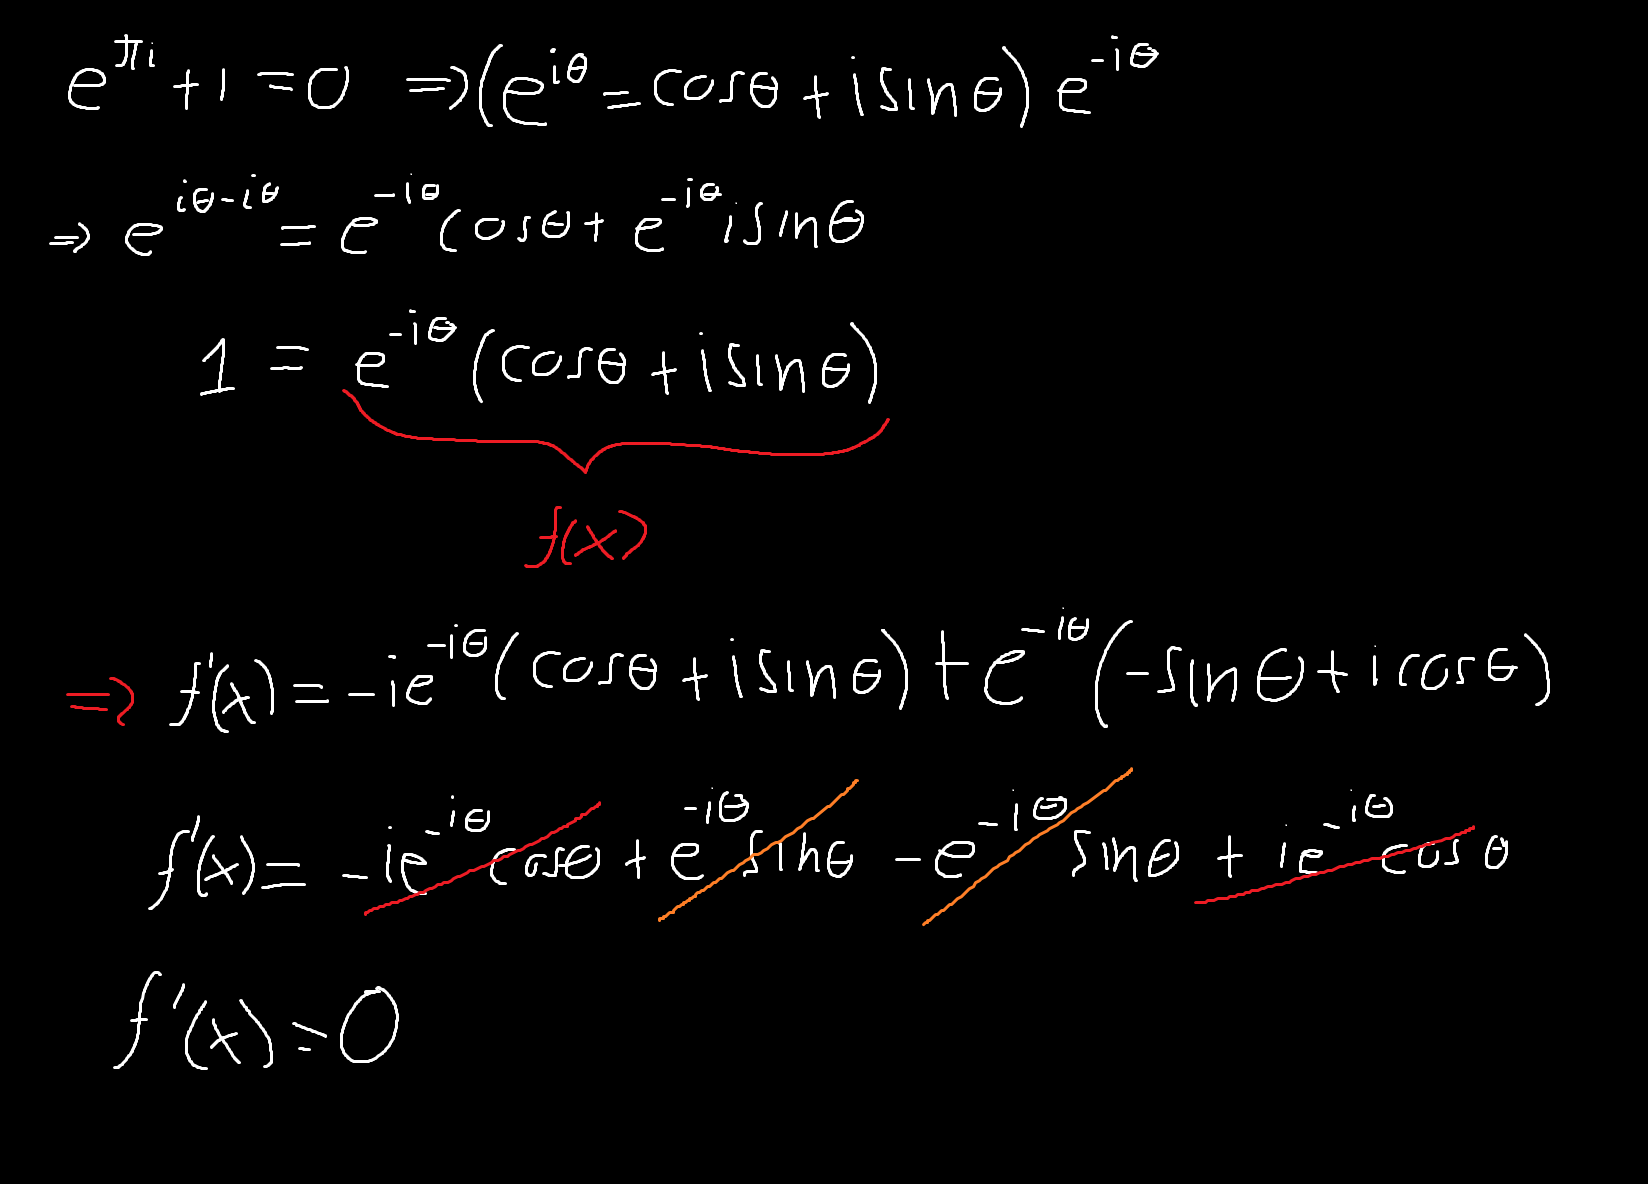 e^{πi} + 1 = 0 ⇒ (e^{iθ} = cosθ + isinθ) e^{-iθ}
⇒ e^{iθ-iθ} = e^{-iθ}cosθ + e^{-iθ}isinθ
1 = e^{-iθ}(cosθ + isinθ)
f(x)
⇒ f'(x) = -ie^{-iθ}(cosθ + isinθ) + e^{-iθ}(-sinθ + icosθ)
f'(x) = -ie^{-iθ}cosθ + e^{-iθ}sinθ - e^{-iθ}sinθ + ie^{-iθ}cosθ
f'(x) = 0